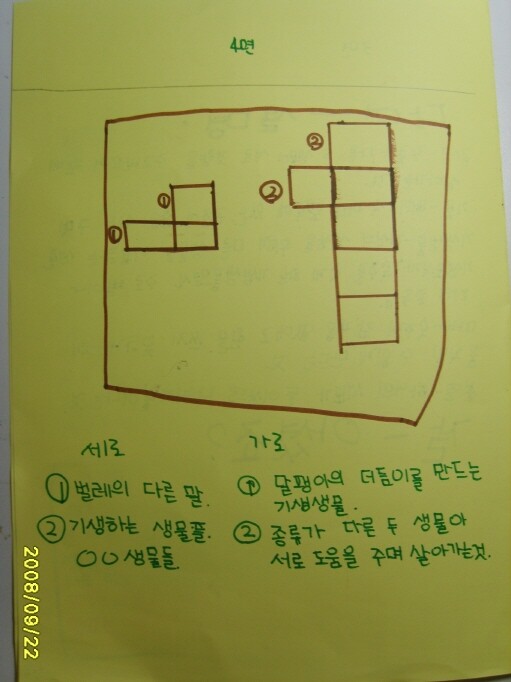 4면
②
①
②
①
세로
가로
① 벌레의 다른 말.
② 기생하는 생물을.
○○생물들.
① 달팽이의 더듬이를 만드는
기생생물.
② 종류가 다른 두 생물이
서로 도움을 주며 살아가는것.
2008/09/22